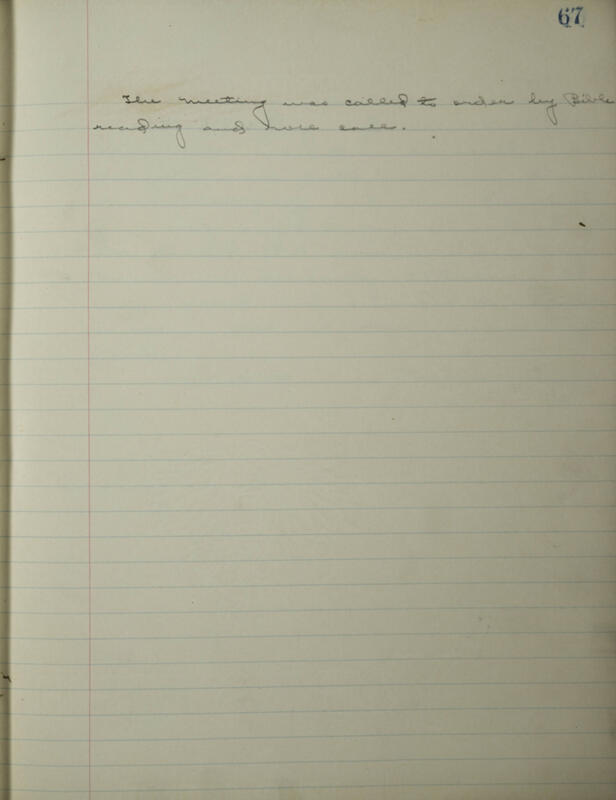 67
The meeting was called to order by Bible
reading and role call.